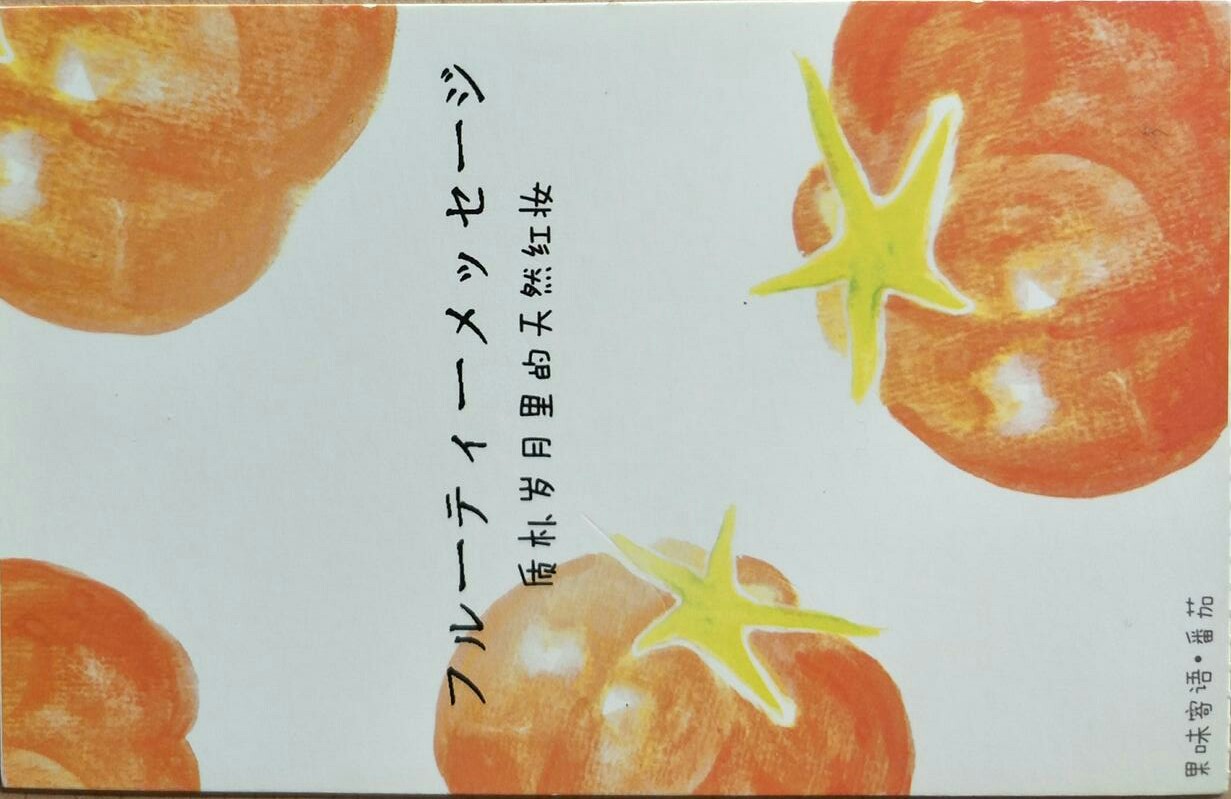 フルーティーメッセージ
质朴岁月里的天然红妆
果味寄语·番茄